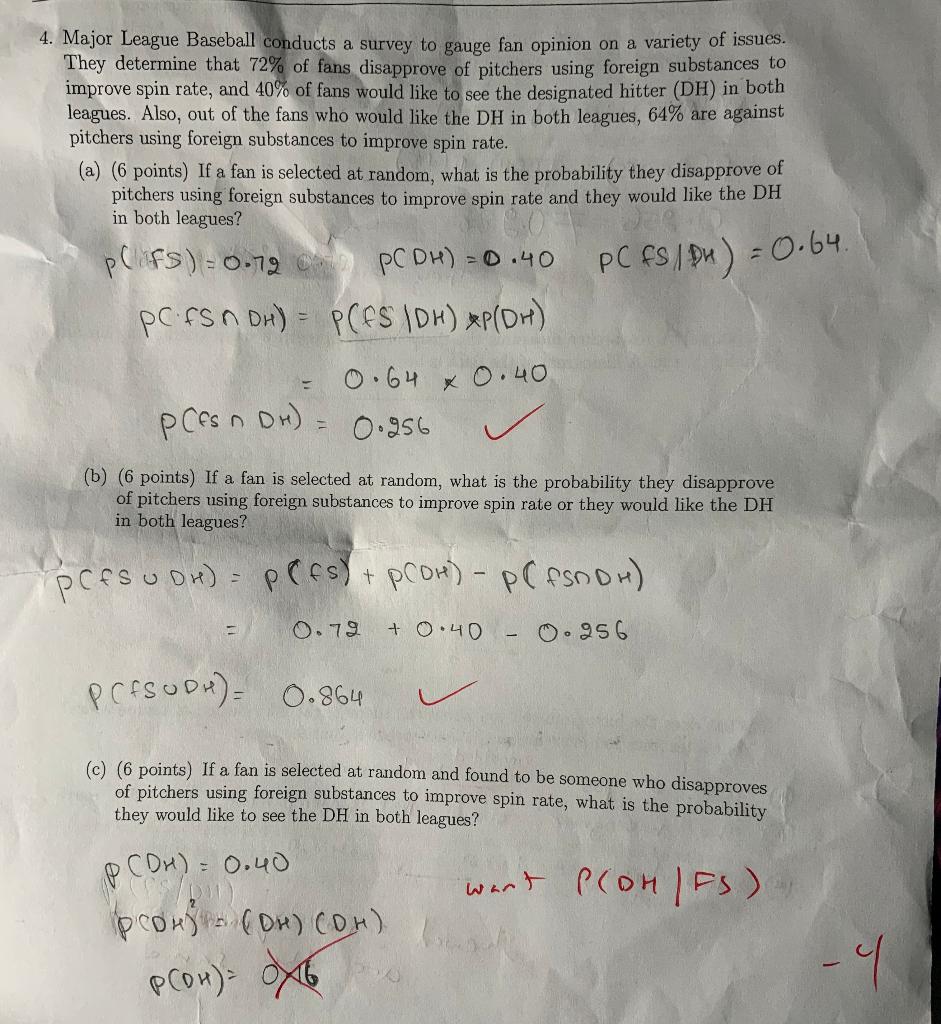 4. Major League Baseball conducts a survey to gauge fan opinion on a variety of issues.
They determine that 72% of fans disapprove of pitchers using foreign substances to
improve spin rate, and 40% of fans would like to see the designated hitter (DH) in both
leagues. Also, out of the fans who would like the DH in both leagues, 64% are against
pitchers using foreign substances to improve spin rate.
(a) (6 points) If a fan is selected at random, what is the probability they disapprove of
pitchers using foreign substances to improve spin rate and they would like the DH
in both leagues?
P(FS) = 0.72 P(DH) = 0.40 P(FS/DH) = 0.64.
P(FS∩DH) = P(FS|DH) *P(DH)
= 0.64 x 0.40
P(FS∩DH) = 0.256 ✓
(b) (6 points) If a fan is selected at random, what is the probability they disapprove
of pitchers using foreign substances to improve spin rate or they would like the DH
in both leagues?
P(FS∪DH) = P(FS) + P(DH) - P(FS∩DH)
= 0.72 + 0.40 - 0.256
P(FS∪DH) = 0.864 ✓
(c) (6 points) If a fan is selected at random and found to be someone who disapproves
of pitchers using foreign substances to improve spin rate, what is the probability
they would like to see the DH in both leagues?
P(DH) = 0.40
want P(DH|FS)
P(DH)² = (DH)(DH)
P(DH) = 0.16
-4